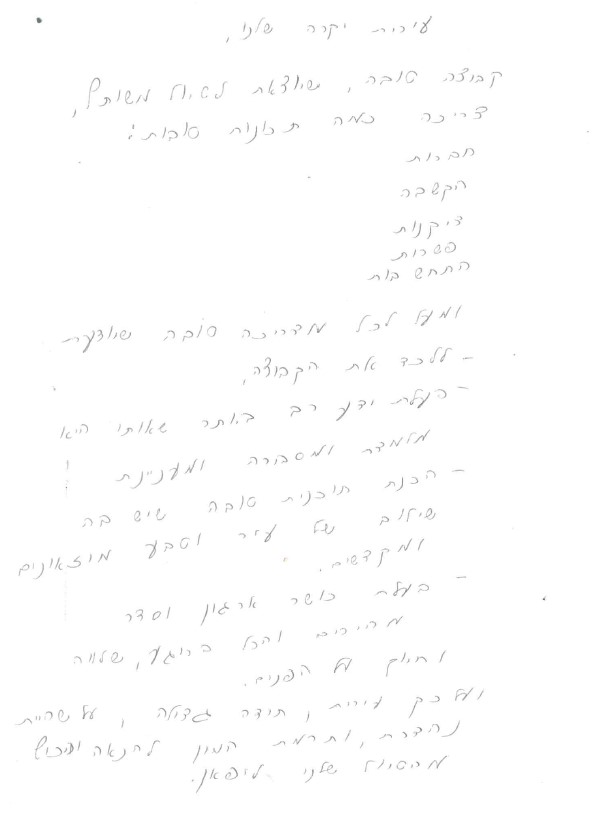 עירית יקרה שלנו,
קבוצה טובה, שיוצאת לטיול משותף,
צריכה כמה תכונות טובות:
חברות
הקשבה
דיקנות
פשרות
התחשבות
ומעל לכל מדריכה טובה שיודעת
- ללכד את הקבוצה,
- בעלת ידע רב ביותר שאותו היא
מלמדת ומסבירה ומעניינת
- הכנת תוכנית טובה שיש בה
שילוב של עיר וטבע מוזאונים
ומקדשים.
- בעלת כושר ארגון וסדר
מהירים והכל ברוגע, שלווה
וחיוך על הפנים.
ועל כן עירית, תודה גדולה, על שהיית
נהדרת, ותרמת המון להנאה
מהטיול שלנו ליפאן.